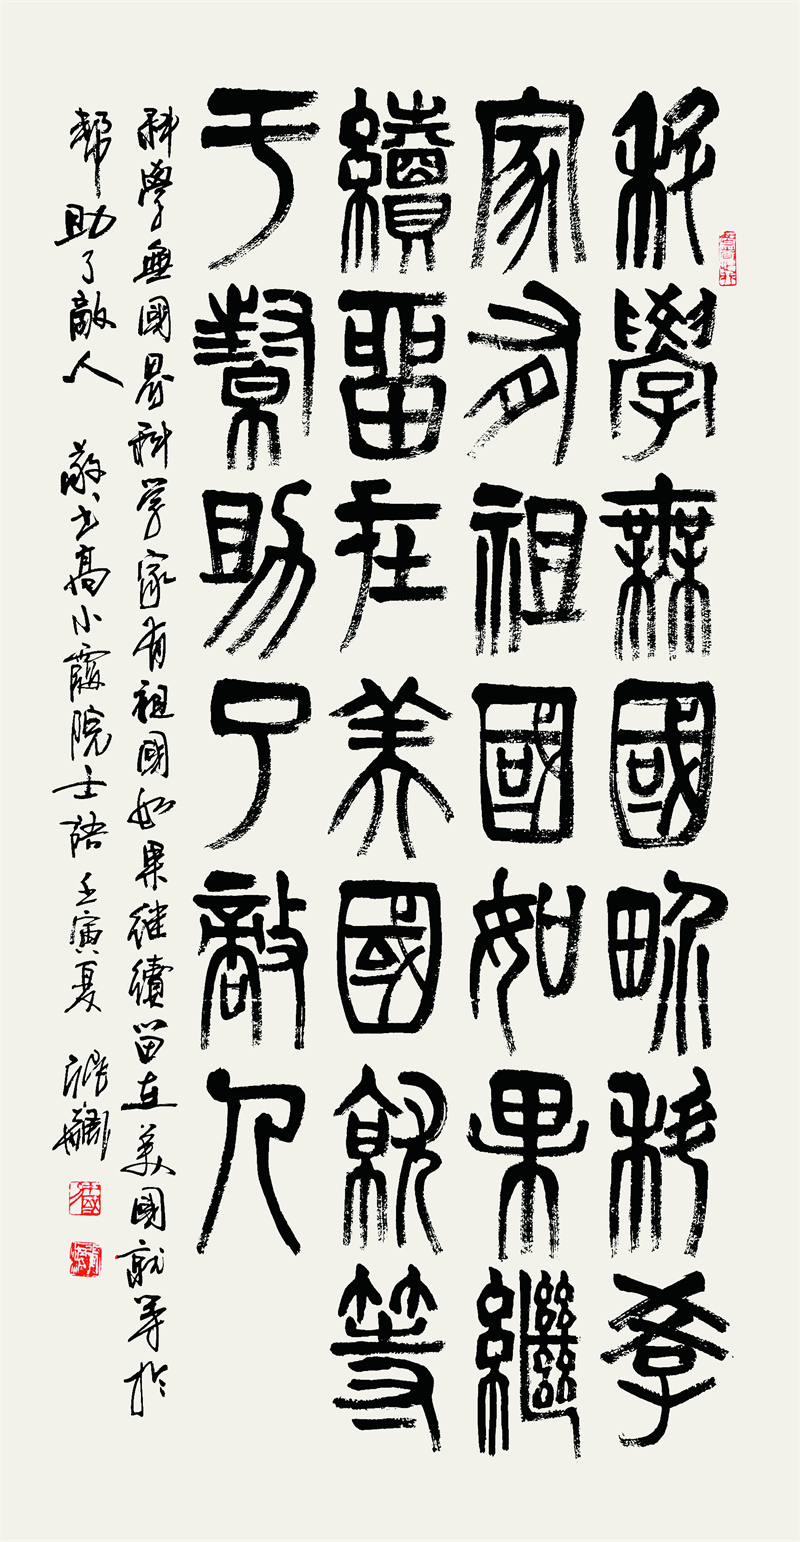 科學無國畍科学
家有祖國如果繼
續留在美國就等
于幫助了敵人
科學無國界科学家有祖國如果继續留在美國就等於
帮助了敵人 敬书高小霞院士語 壬寅夏